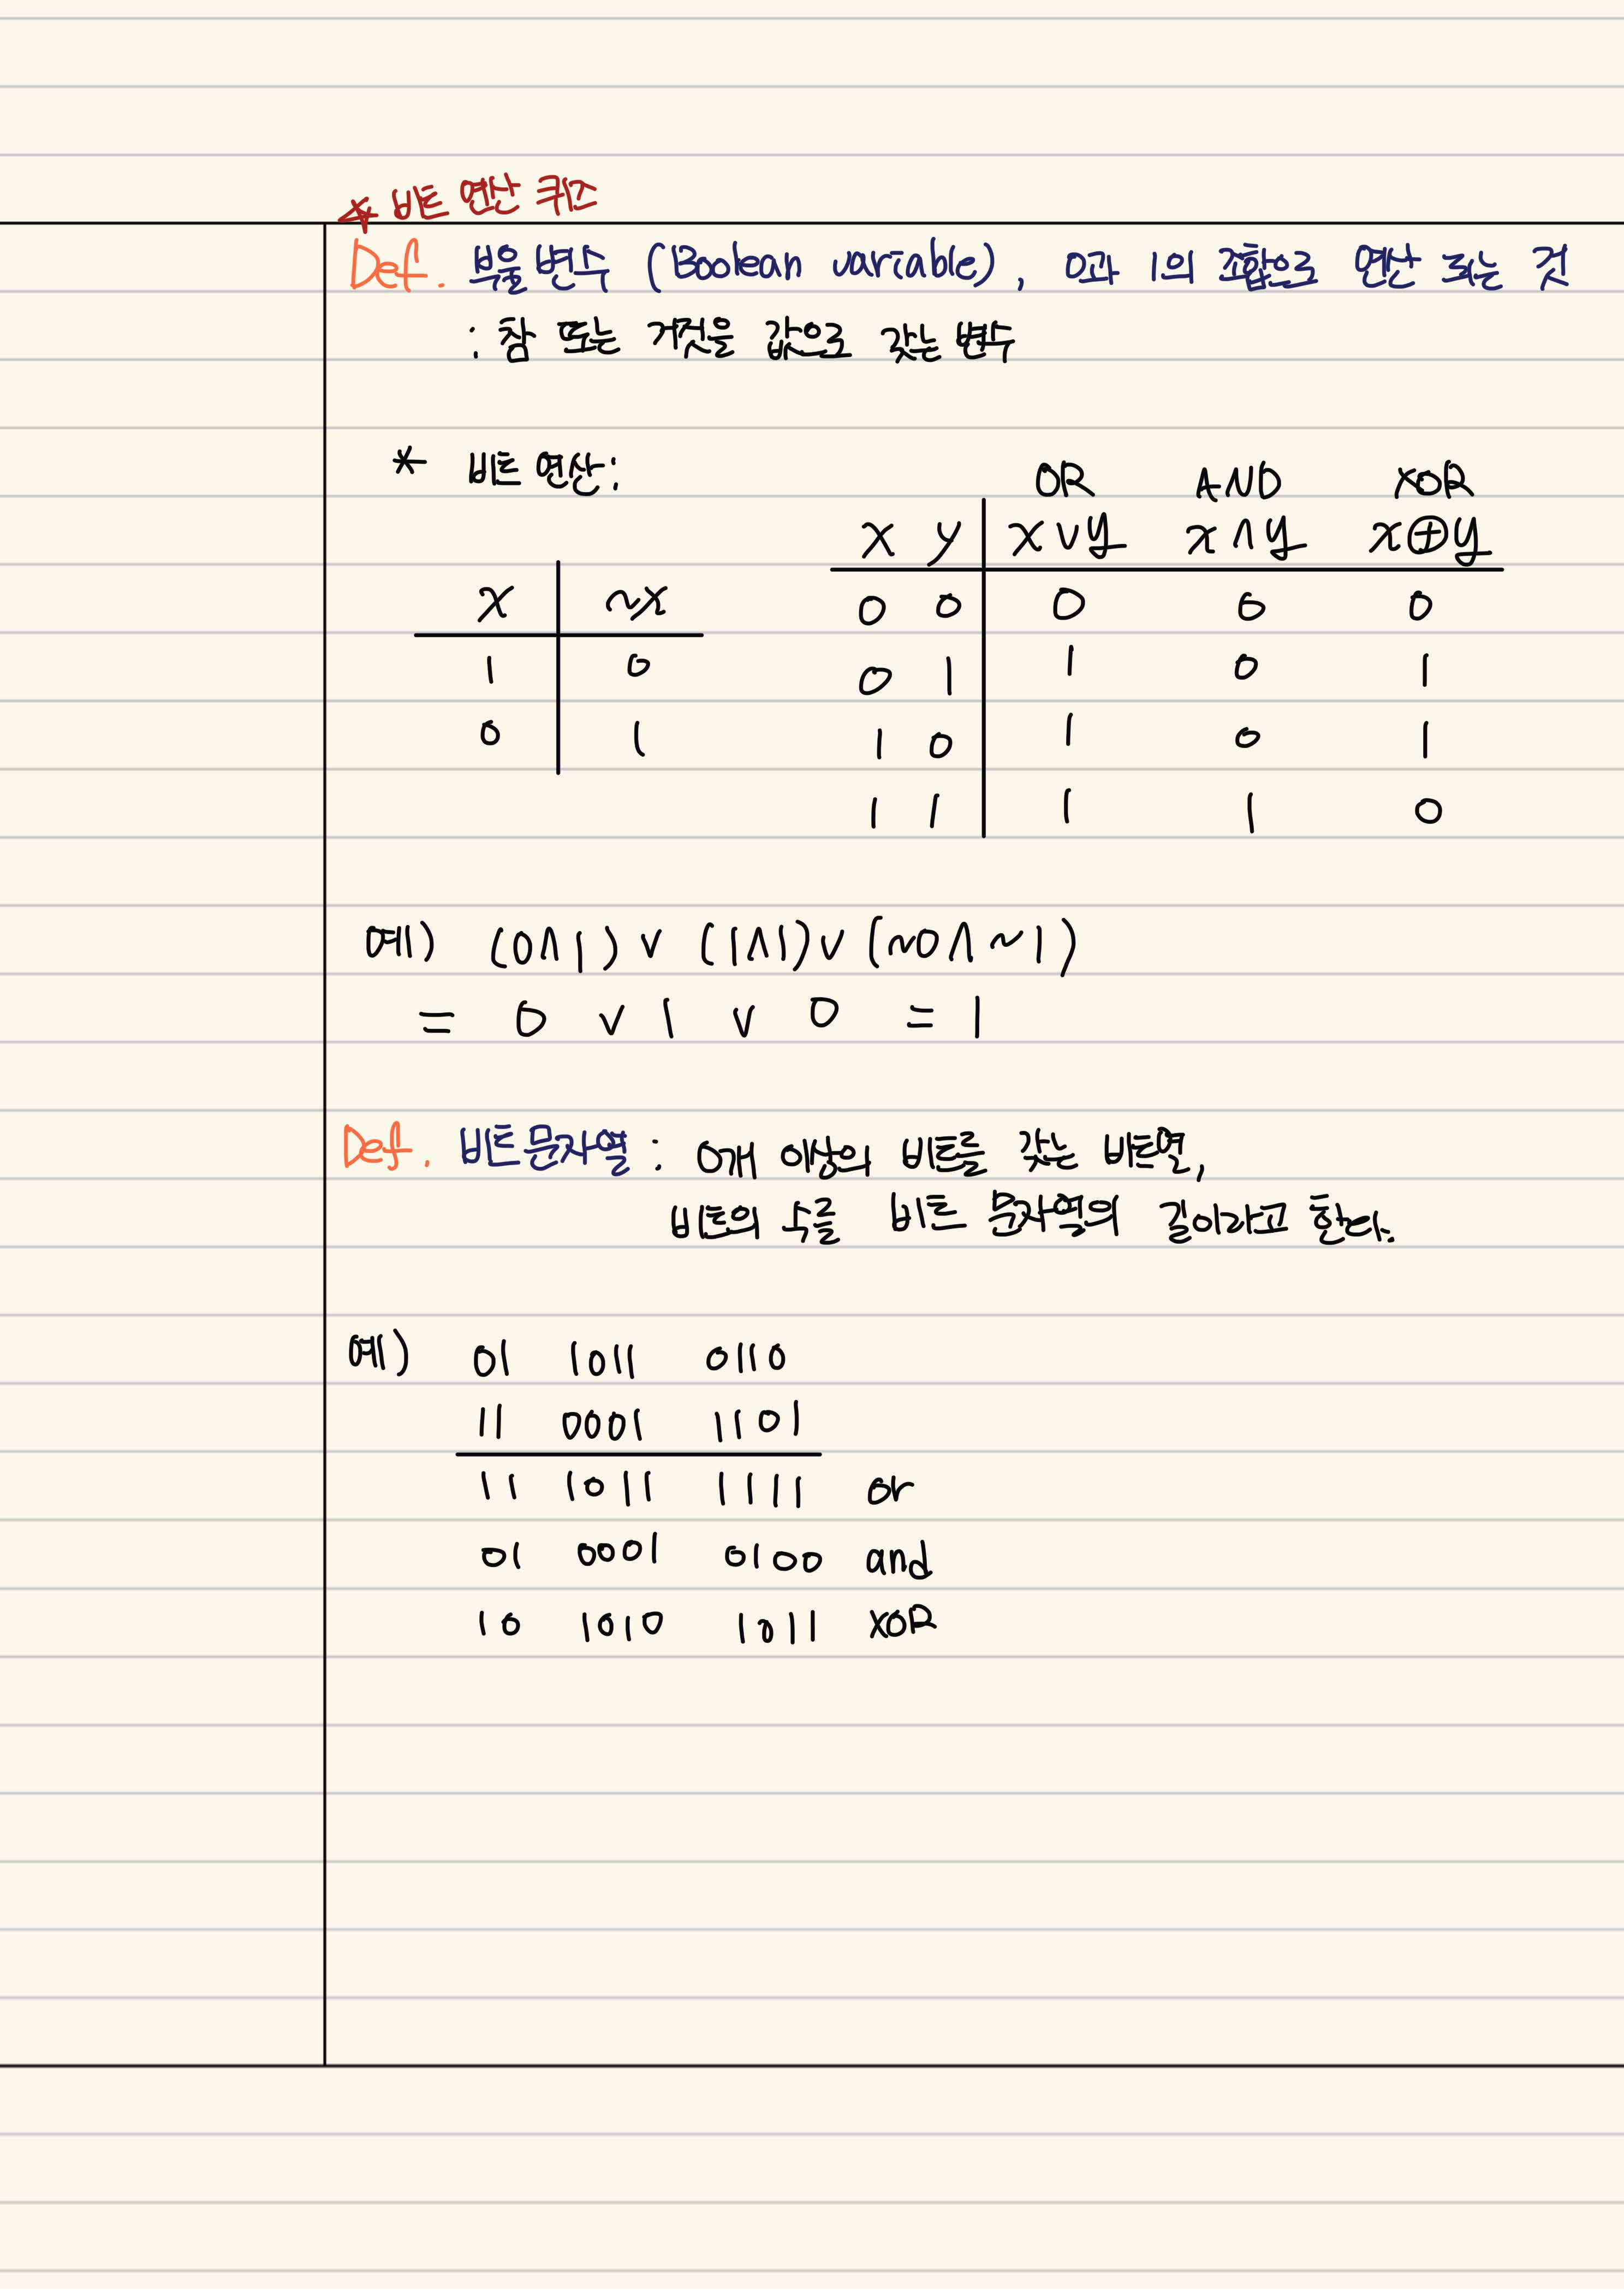 * 비트 연산 퀴즈
Def. 부울 변수 (Boolean variable), 0과 1의 조합으로 연산 되는 것
: 참 또는 거짓을 값으로 갖는 변수
* 비트 연산:
x ~x
1 0
0 1
OR AND XOR
x y x∨y x∧y x⊕y
0 0 0 0 0
0 1 1 0 1
1 0 1 0 1
1 1 1 1 0
예) (0∧1) ∨ (1∧1) ∨ (~0∧~1)
= 0 ∨ 1 ∨ 0 = 1
Def. 비트문자열 : 0개 이상의 비트를 갖는 비트열,
비트의 수를 비트 문자열의 길이라고 한다.
예) 01 1011 0110
11 0001 1101
11 1011 1111 or
01 0001 0100 and
10 1010 1011 XOR